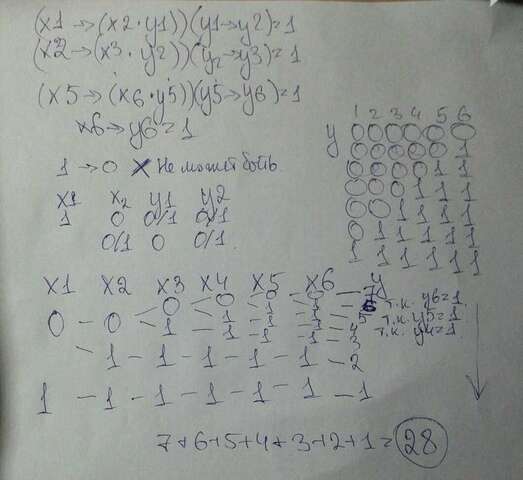 (x1→(x2·y1))(y1→y2)=1
(x2→(x3·y2))(y2→y3)=1
(x5→(x6·y5))(y5→y6)=1
x6→y6=1
1→0 X Не может быть
x1 x2 y1 y2
1 0 0/1 0/1
0/1 0 0/1
1 2 3 4 5 6
y 0 0 0 0 0 0
0 0 0 0 0 1
0 0 0 0 1 1
0 0 0 1 1 1
0 0 1 1 1 1
0 1 1 1 1 1
1 1 1 1 1 1
x1 x2 x3 x4 x5 x6 y
0 0 0 0 0 0 7
1 1 1 6 т.к. y6=1
0 - 0 1 1 1 1 5 т.к. y5=1
4 т.к. y4=1
3
1 - 1 - 1 - 1 - 1 - 2
1 - 1 - 1 - 1 - 1 - 1 - 1
7+6+5+4+3+2+1=28